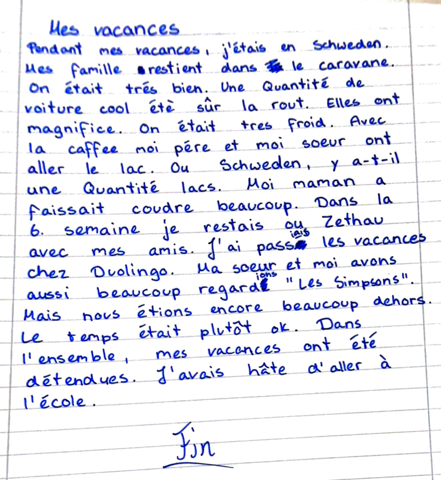 Mes vacances
Pendant mes vacances, j'étais en Schweden.
Mes famille restient dans le caravane.
On était trés bien. Une Quantité de
voiture cool étè sûr la rout. Elles ont
magnifice. On était tres froid. Avec
la caffee moi pére et moi soeur ont
aller le lac. Ou Schweden, y a-t-il
une Quantité lacs. Moi maman a
faissait coudre beaucoup. Dans la
6. semaine je restais ou Zethau
avec mes amis. J'ai passiais les vacances
chez Duolingo. Ma soeur et moi avons
aussi beaucoup regardions "Les Simpsons".
Mais nous étions encore beaucoup dehors.
Le temps était plutôt ok. Dans
l'ensemble, mes vacances ont été
détendues. J'avais hâte d'aller à
l'école.
Fin